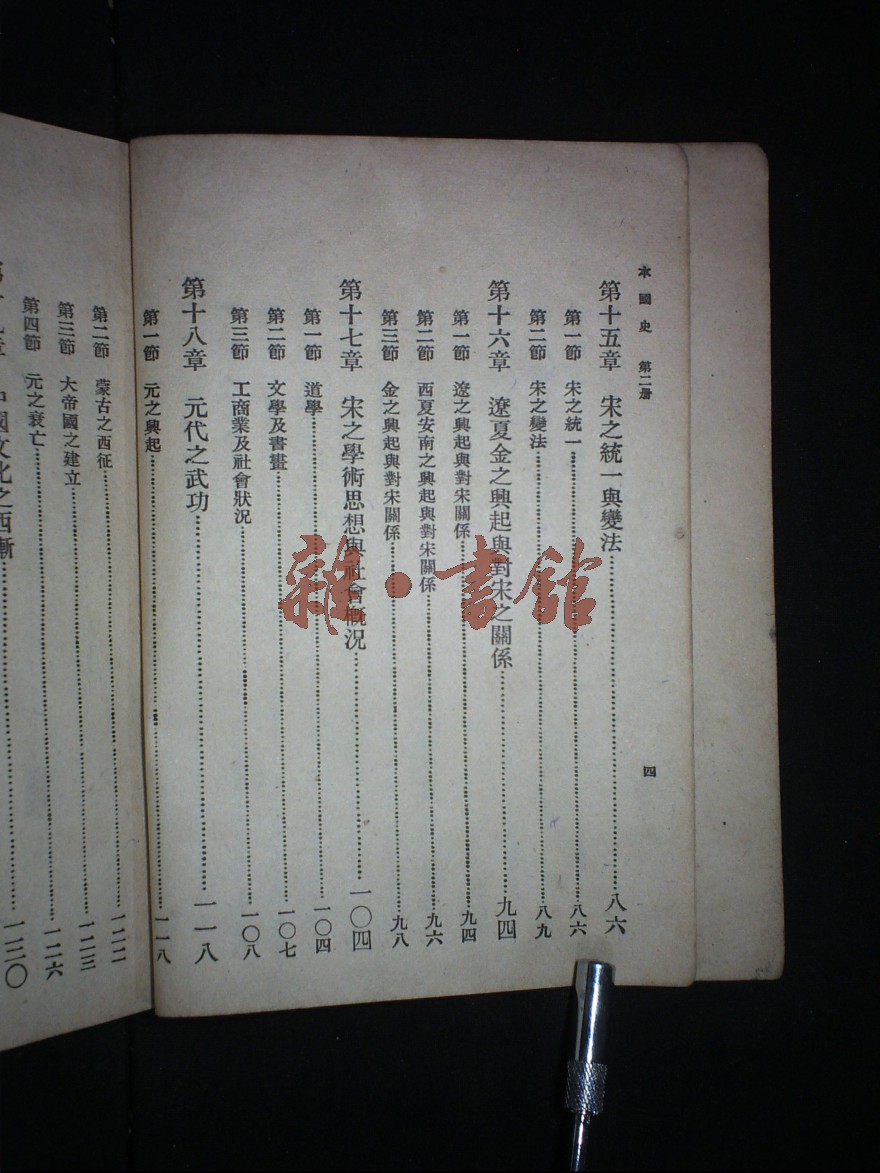 本國史 第二册
四
第十五章 宋之統一與變法……八六
第一節 宋之統一……八六
第二節 宋之變法……八九
第十六章 遼夏金之興起與對宋之關係……九四
第一節 遼之興起與對宋關係……九四
第二節 西夏安南之興起與對宋關係……九六
第三節 金之興起與對宋關係……九八
第十七章 宋之學術思想與社會概況……一〇四
第一節 道學……一〇四
第二節 文學及書畫……一〇七
第三節 工商業及社會狀況……一〇八
第十八章 元代之武功……一一八
第一節 元之興起……一一八
第二節 蒙古之西征……一二二
第三節 大帝國之建立……一二三
第四節 元之衰亡……一二六
章 中國文化之西漸……一三〇
雜·書館